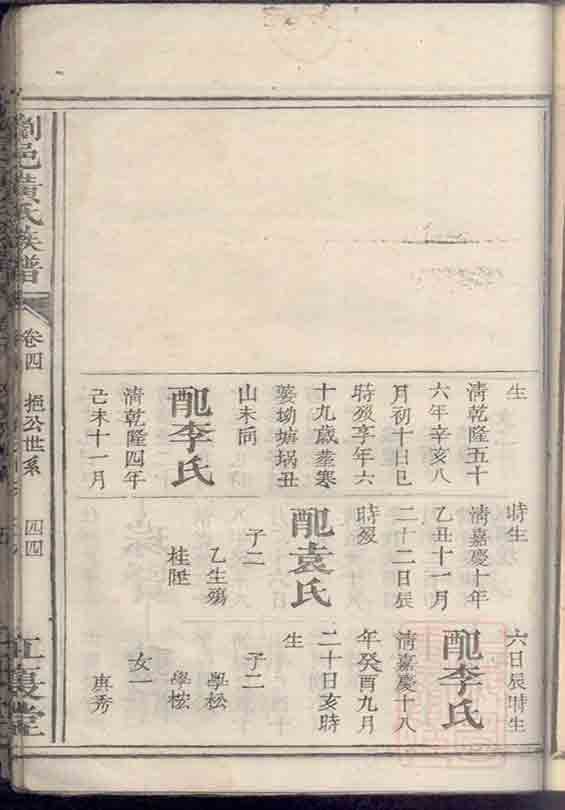 瀏邑黃氏族譜
卷四
挹公世系
四四
江夏堂
生
清乾隆五十
六年辛亥八
月初十日巳
時歿享年六
十九歲塟寒
婆坳塘堝丑
山未向
配李氏
清乾隆四年
己未十一月
時生
清嘉慶十年
乙丑十一月
二十二日辰
時歿
配袁氏
子二
乙生殤
桂陞
六日辰時生
配李氏
清嘉慶十八
年癸酉九月
二十日亥時
生
子二
學松
學桉
女一
庚秀